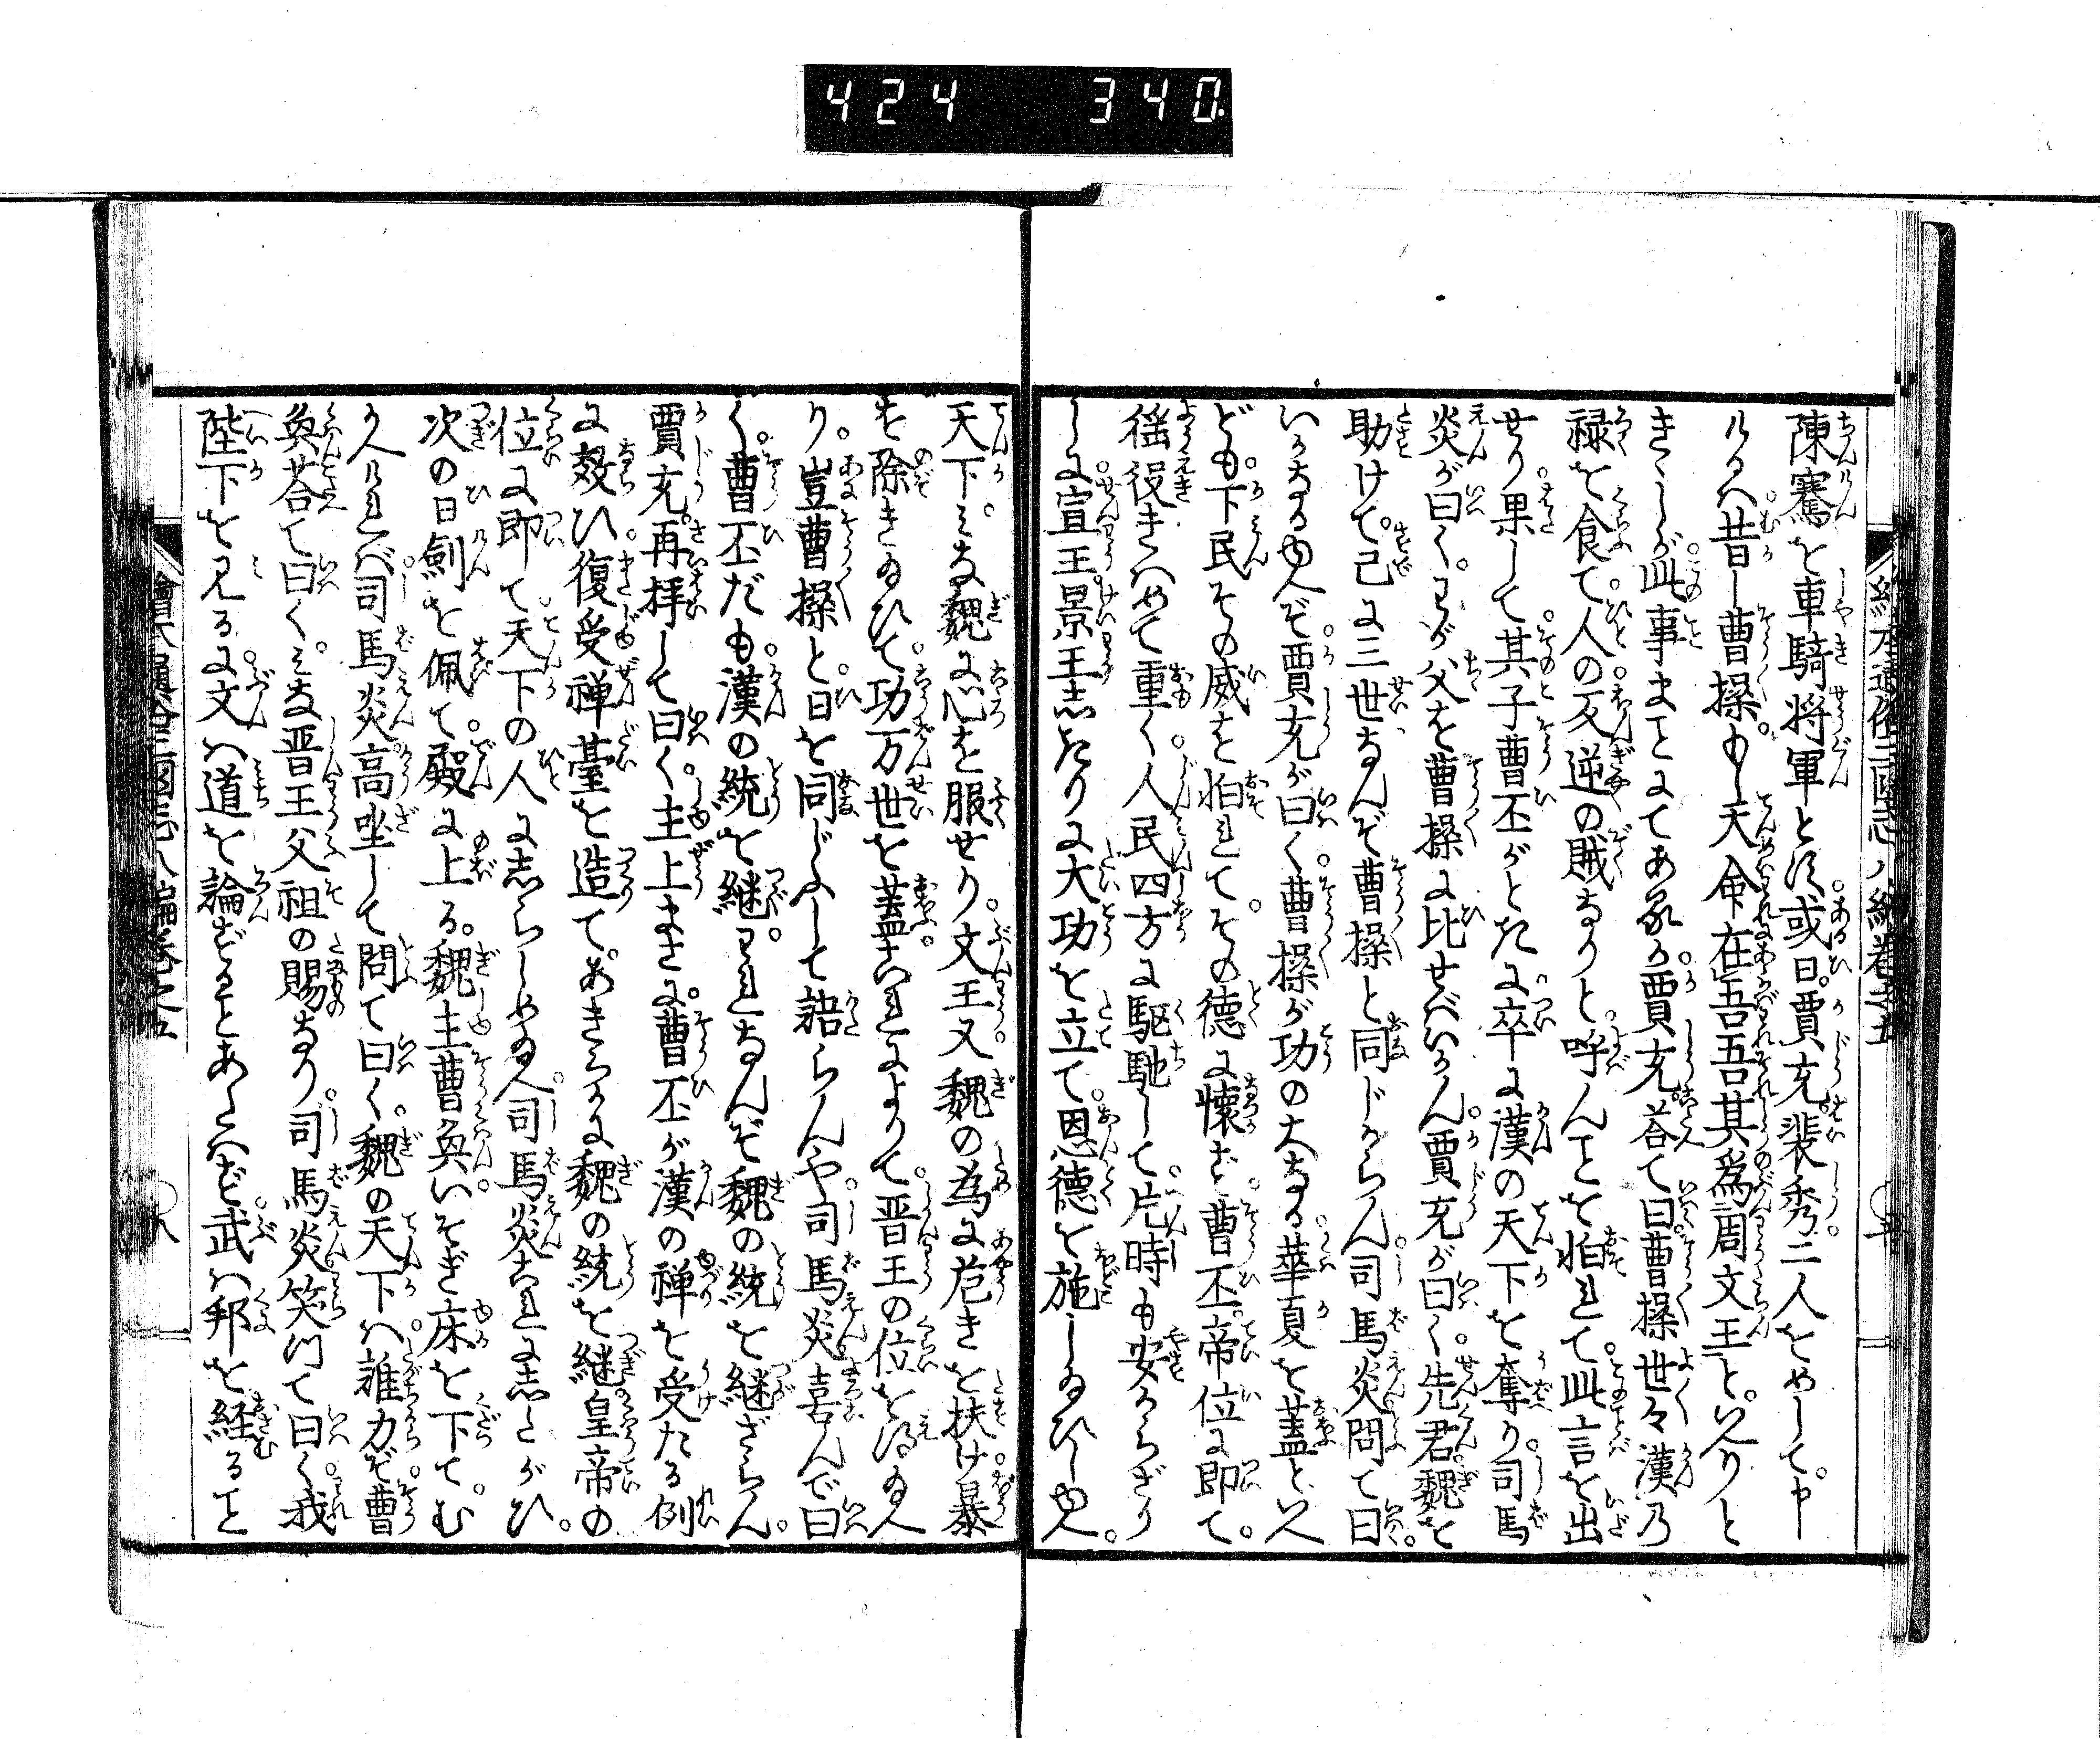 424 340.
繪本通俗三國志八編巻之五
陳騫を車騎将軍とす。或日。賈充。裴秀二人をめして。申し
けるハ昔し曹操。もし天命在吾吾其為周文王と。いへりと
きゝしが。此事まことにてあるか。賈充。荅て曰。曹操世々漢乃
禄を食て。人の反逆の賊なりと。呼んことを怕れて。此言を出
せり。果して。其子曹丕がときに。卒に漢の天下を奪り。司馬
炎が曰く。わが父を曹操に比せばいかん。賈充が曰く。先君魏を
助けて。已に三世なんぞ曹操と同じからん。司馬炎問て曰。
いかなるゆへぞ。賈充が曰く。曹操が功の大なる。華夏を蓋といへ
ども。下民その威を怕れて。その徳に懐ず。曹丕。帝位に即て。
徭役きハめて重く。人民四方に駆馳して。片時も安からざり
しに。宣王景王志きりに大功を立て。恩徳を施しゐひしゆへ。
天下。みな魏に心を服せり。文王又魏の為に危きを扶け。暴
を除きゐひて。功万世を蓋。これによりて。晋王の位を得ゐへ
り。豈曹操と。日を同じふして語らんや。司馬炎喜んで曰
く。曹丕だも。漢の統を継。われなんぞ魏の統を継ざらん。
賈充。再拝して曰く。主上まさに。曹丕が漢の禅を受たる例
に效ひ。復受禅臺を造て。あきらかに魏の統を継皇帝の
位に即て。天下の人に志らしめゐへ。司馬炎これに志たがひ。
次の日劍を佩て。殿に上る。魏主曹奐。いそぎ床を下て。む
かへけれバ。司馬炎高坐して問て曰く。魏の天下ハ。誰力ぞ。曹
奐荅て曰く。みな晋王父祖の賜なり。司馬炎。笑つて曰く。我
陛下を見るに。文ハ道を論ずることあたハず。武ハ邦を経ること
八